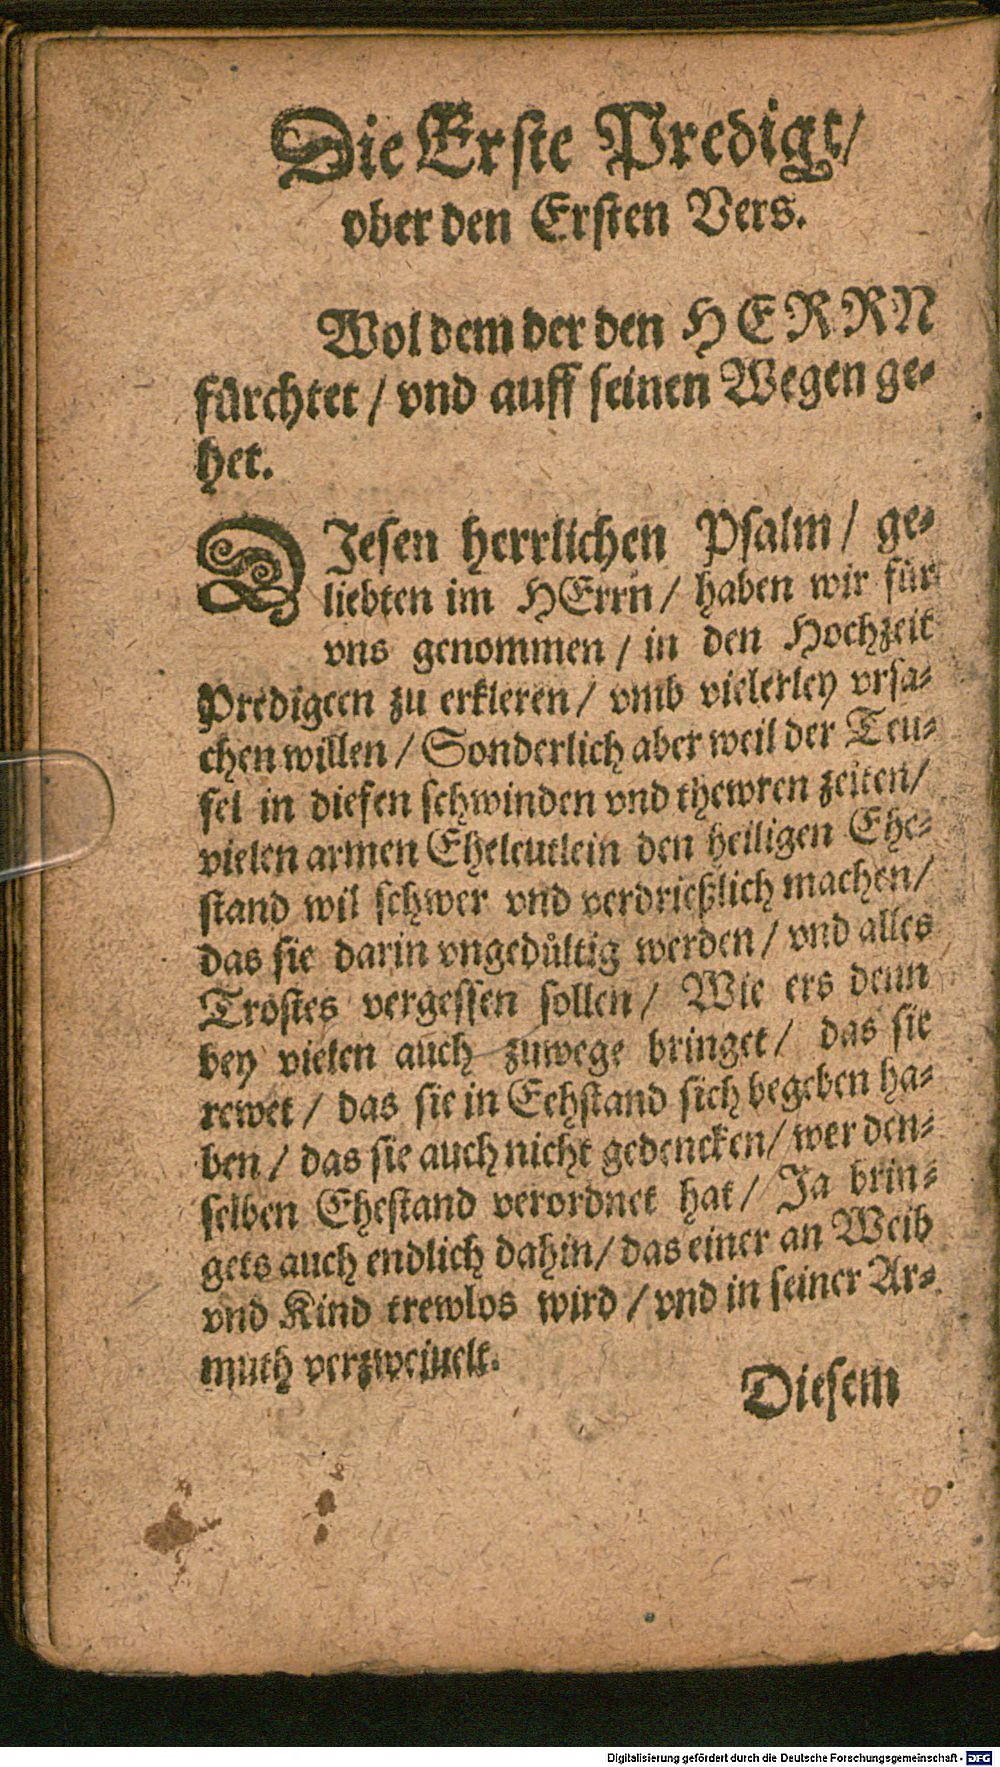 Die Erste Predigt/
vber den Ersten Vers.
Wol dem der den HERRN
fürchtet / vnd auff seinen Wegen ge-
het.
DJesen herrlichen Psalm / ge-
liebten im HErrn / haben wir für
vns genommen / in den Hochzeit
Predigeen zu erkleren / vmb vielerley vrsa-
chen willen / Sonderlich aber weil der Teu-
fel in diesen schwinden vnd thewren zeiten/
vielen armen Eheleutlein den heiligen Ehe-
stand wil schwer vnd verdrießlich machen/
das sie darin vngedültig werden / vnd alles
Trostes vergessen sollen / Wie ers denn
bey vielen auch zuwege bringet / das sie
rewet / das sie in Eehstand sich begeben ha-
ben / das sie auch nicht gedencken / wer den-
selben Ehestand verordnet hat / Ja brin-
gets auch endlich dahin / das einer an Weib
vnd Kind trewlos wird / vnd in seiner Ar-
muth verzweiuelt.
Diesem
Digitalisierung gefördert durch die Deutsche Forschungsgemeinschaft - DFG